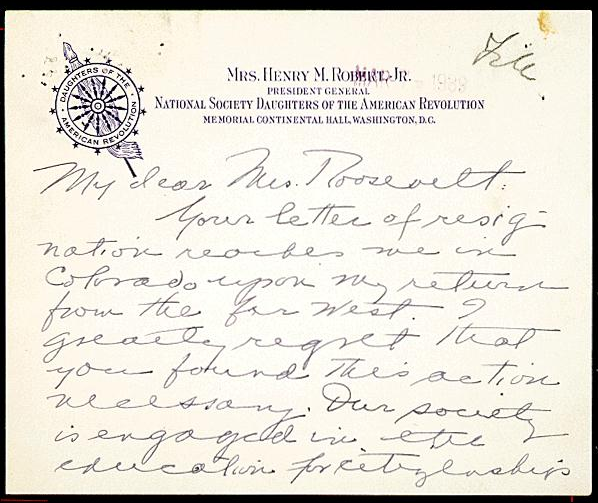 File
MRS. HENRY M. ROBERT, JR.
PRESIDENT GENERAL
NATIONAL SOCIETY DAUGHTERS OF THE AMERICAN REVOLUTION
MEMORIAL CONTINENTAL HALL, WASHINGTON, D.C.
DAUGHTERS OF THE
AMERICAN REVOLUTION
1939
My dear Mrs. Roosevelt:
Your letter of resig-
nation reaches me in
Colorado upon my return
from the far West. I
greatly regret that
you found this action
necessary. Our society
is engaged in the
education for citizenship